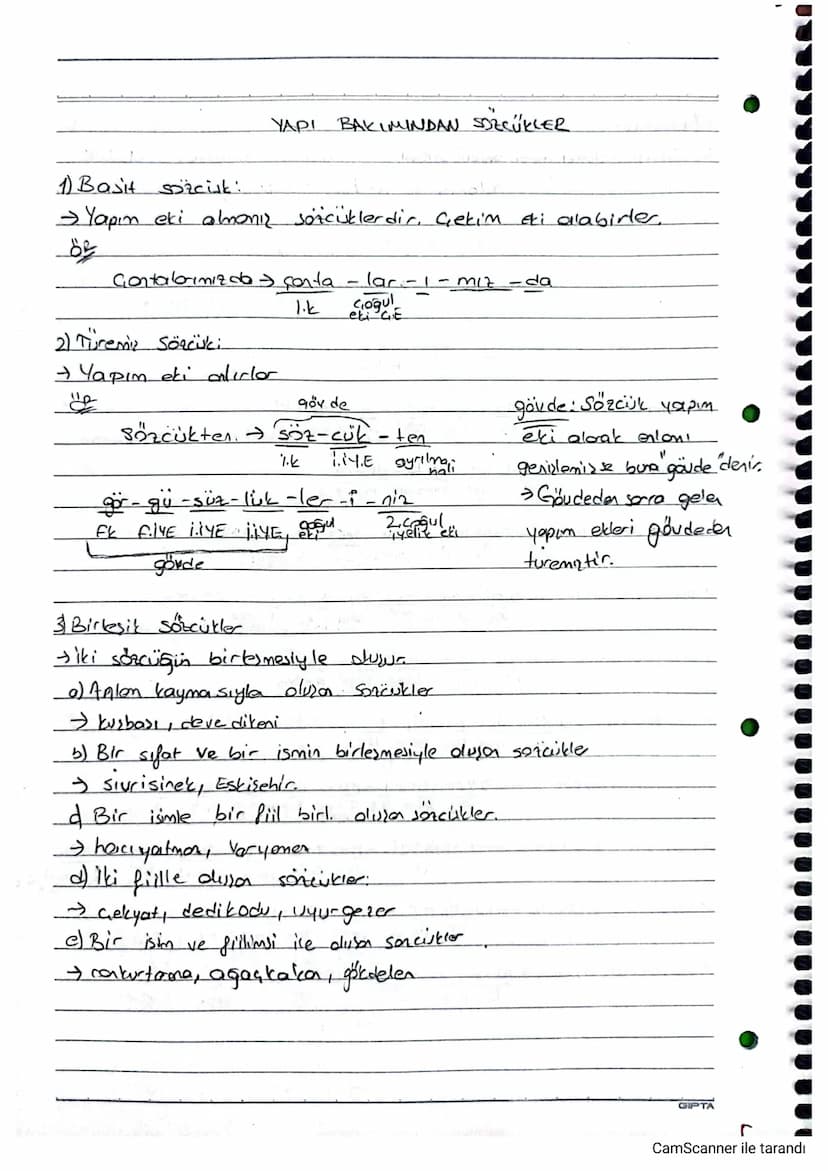 YAPI BAKIMINDAN SÖZCÜKLER
1) Basit sözcük:
→ Yapım eki almamış sözcüklerdir. Çekim eki alabirler.
ör
Çantalarımızda → çanta - lar - ı - mız - da
i.k çoğul eki Ç.E
2) Türemiş Sözcük:
→ Yapım eki alırlar
ör
gövde
Sözcükten. → söz - cük - ten
i.k İ.İ.Y.E ayrılma hali
gör - gü - süz - lük - ler - i - niz
FK F.İYE İ.İYE İ.İYE, çoğul eki 2. çoğul iyelik eki
gövde
gövde: Sözcük yapım
eki alarak anlamı
genişlemişse buna "gövde" denir.
→ Gövdeden sonra gelen
yapım ekleri gövdeden
türemiştir.
3) Birleşik Sözcükler
→ İki sözcüğün birleşmesiyle oluşur.
a) Anlam kaymasıyla oluşan sözcükler
→ kuşbaşı, deve dikeni
b) Bir sıfat ve bir ismin birleşmesiyle oluşan sözcükler
→ sivrisinek, Eskişehir.
c) Bir isimle bir fiil birl. oluşan sözcükler.
→ hacıyatmaz, Varyemez
d) İki fiille oluşan sözcükler:
→ Çekyat, dedikodu, uyurgezer
e) Bir isim ve fiilimsi ile oluşan sözcükler.
→ cankurtaran, ağaçkakan, gökdelen
GIPTA
CamScanner ile tarandı